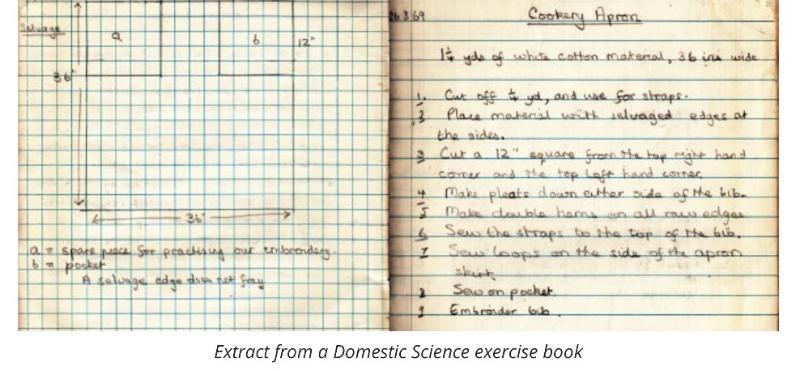 Selvage
a
b
12"
36"
36"
a = spare piece for practising our embroidery.
b = pocket
A selvage edge does not fray
26.3.69
Cookery Apron
1¼ yds of white cotton material, 36 ins wide
1. Cut off ¼ yd, and use for straps.
2 Place material with selvaged edges at
the sides.
3 Cut a 12" square from the top right hand
corner and the top left hand corner.
4 Make pleats down either side of the bib.
5 Make double hems on all raw edges
6 Sew the straps to the top of the bib.
7 Sew loops on the side of the apron
skirt.
8 Sew on pocket.
9 Embroider bib.
Extract from a Domestic Science exercise book